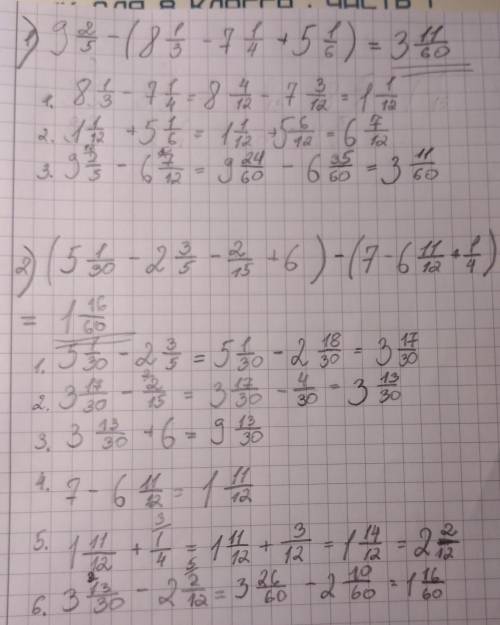 1) 9 2/5 - (8 1/3 - 7 1/4 + 5 1/6) = 3 11/60
1. 8 1/3 - 7 1/4 = 8 4/12 - 7 3/12 = 1 1/12
2. 1 1/12 + 5 1/6 = 1 1/12 + 5 6/12 = 6 7/12
3. 9 2/5 - 6 7/12 = 9 24/60 - 6 35/60 = 3 11/60
2) (5 1/30 - 2 3/5 - 2/15 + 6) - (7 - 6 11/12 + 1/4)
= 1 16/60
1. 5 1/30 - 2 3/5 = 5 1/30 - 2 18/30 = 3 17/30
2. 3 17/30 - 2/15 = 3 17/30 - 4/30 = 3 13/30
3. 3 13/30 + 6 = 9 13/30
4. 7 - 6 11/12 = 1 11/12
5. 1 11/12 + 1/4 = 1 11/12 + 3/12 = 1 14/12 = 2 2/12
6. 3 13/30 - 2 2/12 = 3 26/60 - 2 10/60 = 1 16/60